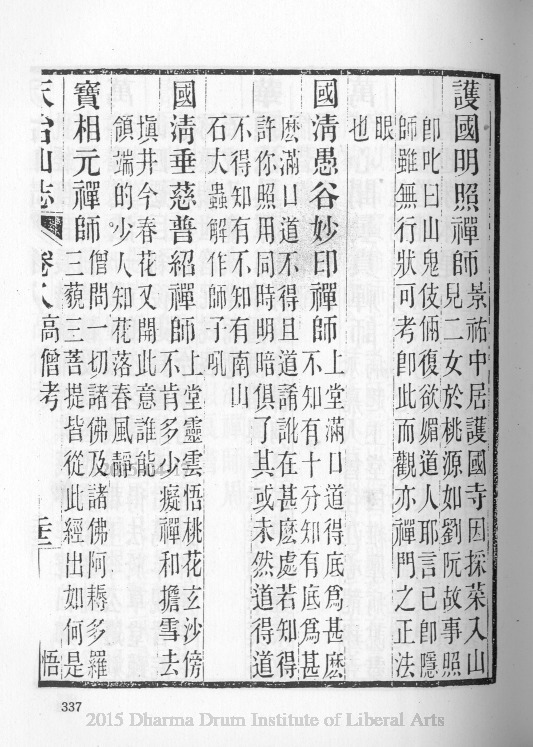 護國明照禪師景祐中居護國寺因採菜入山
見二女於桃源如劉阮故事照
卽叱曰山鬼伎倆復欲媚道人耶言已卽隱
師雖無行狀可考卽此而觀亦禪門之正法
眼
也
國清愚谷妙印禪師上堂滿口道得底爲甚麽
不知有十分知有底爲甚
麽滿口道不得且道誵訛在甚麽處若知得
許你照用同時明暗俱了其或未然道得道
不得知有不知有南山
石大蟲解作師子吼
國清垂慈普紹禪師上堂靈雲悟桃花玄沙傍
不肯多少癡禪和擔雪去
塡井今春花又開此意誰能
領端的少人知花落春風靜
寶相元禪師僧問一切諸佛及諸佛阿耨多羅
三藐三菩提皆從此經出如何是
天台山志 卷八高僧考 三 悟
337
2015 Dharma Drum Institute of Liberal Arts